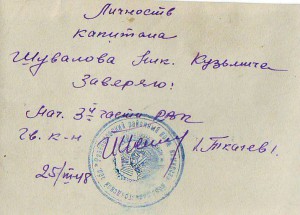 Личность
капитана
Шувалова Ник. Кузьмича
Заверяю:
Нач. 3й части РВК
Гв. к-н
/Ткачев/.
25/III 48